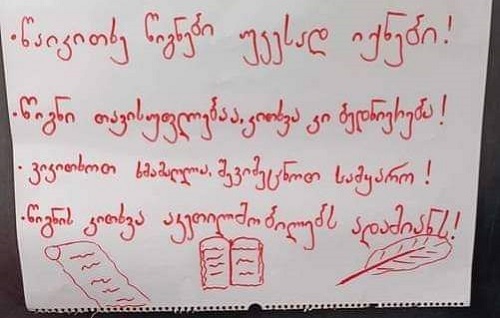 •წაიკითხე წიგნები უკეთესად იქნები!
•წიგნი თავისუფლებაა, კითხვა კი ბედნიერება!
• ვიკითხოთ ხმამაღლა, შევიმეცნოთ სამყარო!
•წიგნის კითხვა აკეთილშობილებს ადამიანს!